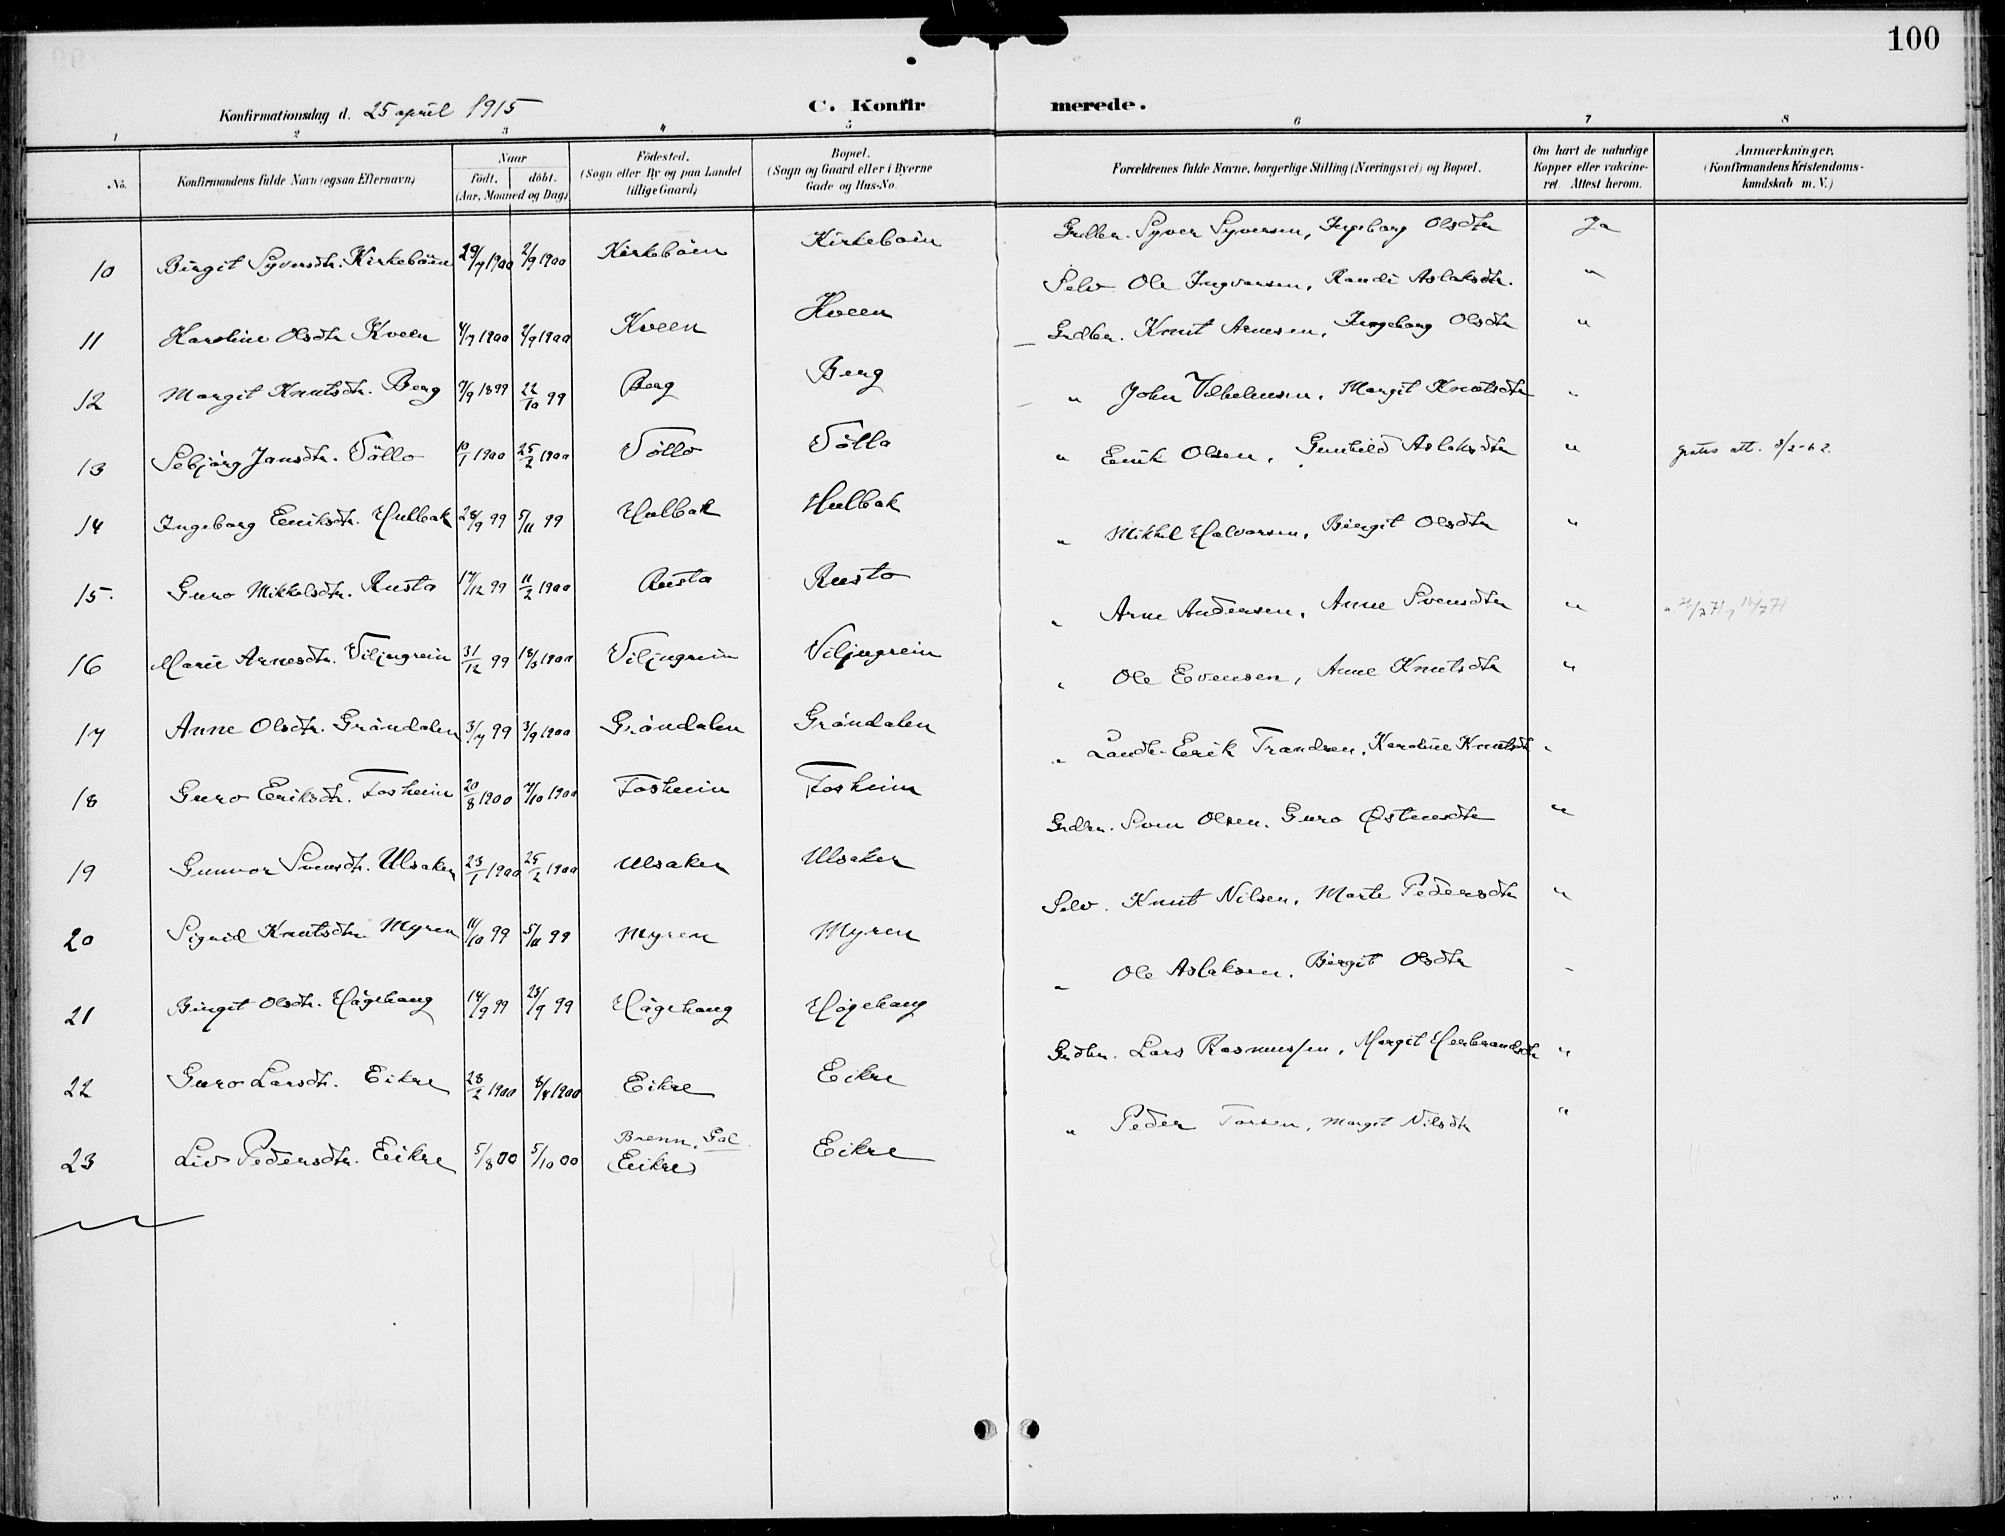 100
Konfirmationsdag d. 25 april 1915
C. Konfirmerede.
1 2 3 4 5 6 7 8
No. | Konfirmandens fulde Navn (ogsaa Efternavn) | Naar födt. döbt. (Aar, Maaned og Dag) | Födested. (Sogn eller By og paa Landet tillige Gaard) | Bopæl. (Sogn og Gaard eller i Byerne Gade og Hus-No. | Forældrenes fulde Navne, borgerlige Stilling (Næringsvei) og Bopæl. | Om havt de naturlige Kopper eller vakcineret. Attest herom. | Anmærkninger. (Konfirmandens Kristendomskundskab m. V.)
10 Birgit Syversdtr. Kirkeböen 29/7 1900 2/9 1900 Kirkeböen Kirkeböen Grdbr. Syver Syversen, Ingeborg Olsdtr Ja
11 Karoline Olsdtr Kveen 4/7 1900 2/9 1900 Kveen Kveen Selv Ole Ingvarsen, Randi Aslaksdtr. "
12 Margit Knutsdtr. Berg 7/9 1899 22/10 99 Berg Berg Grdbr. Knut Arnesen, Ingeborg Olsdtr "
13 Sebjörg Jonsdtr. Töllo 10/1 1900 25/2 1900 Töllo Töllo " John Vilhelmsen, Margit Knutsdtr "
14 Ingeborg Eriksdtr. Hulbak 28/9 99 5/11 99 Hulbak Hulbak " Erik Olsen, Gunhild Aslaksdtr " gratis att. 8/2-62.
15. Guro Mikkelsdtr. Rusto 17/12 99 11/2 1900 Rusto Rusto " Mikkel Halvorsen, Birgit Olsdtr "
16 Marie Arnesdtr. Viljugrein 31/12 99 18/3 1900 Viljugrein Viljugrein " Arne Andersen, Anne Svensdtr "
17 Anne Olsdtr. Gröndalen 3/7 99 3/9 1900 Gröndalen Gröndalen " Ole Evensen, Anne Knutsdtr "
18 Guro Eriksdtr. Fosheim 20/8 1900 7/10 1900 Fosheim Fosheim " Landh. Erik Trondsen, Karoline Knutsdt "
19 Gunvor Svensdtr. Ulsaker 23/1 1900 25/2 1900 Ulsaker Ulsaker Grdbr. Sven Olsen, Guro Østensdtr "
20 Sigrid Knutsdtr Myren 11/10 99 5/11 99 Myren Myren Selv. Knut Nilsen, Marte Pedersdtr "
21 Birgit Olsdtr. Hågehaug 14/9 99 23/9 99 Hågehaug Hågehaug " Ole Aslaksen, Birgit Olsdtr "
22 Guro Larsdtr. Eikre 28/2 1900 8/4 1900 Eikre Eikre Grdbr. Lars Rasmussen, Margit Herbrandsdtr "
23 Liv Pedersdtr. Eikre 5/8 00 5/10 00 Brenn, Gol (Eikre) Eikre " Peder Torsen, Margit Nilsdtr "